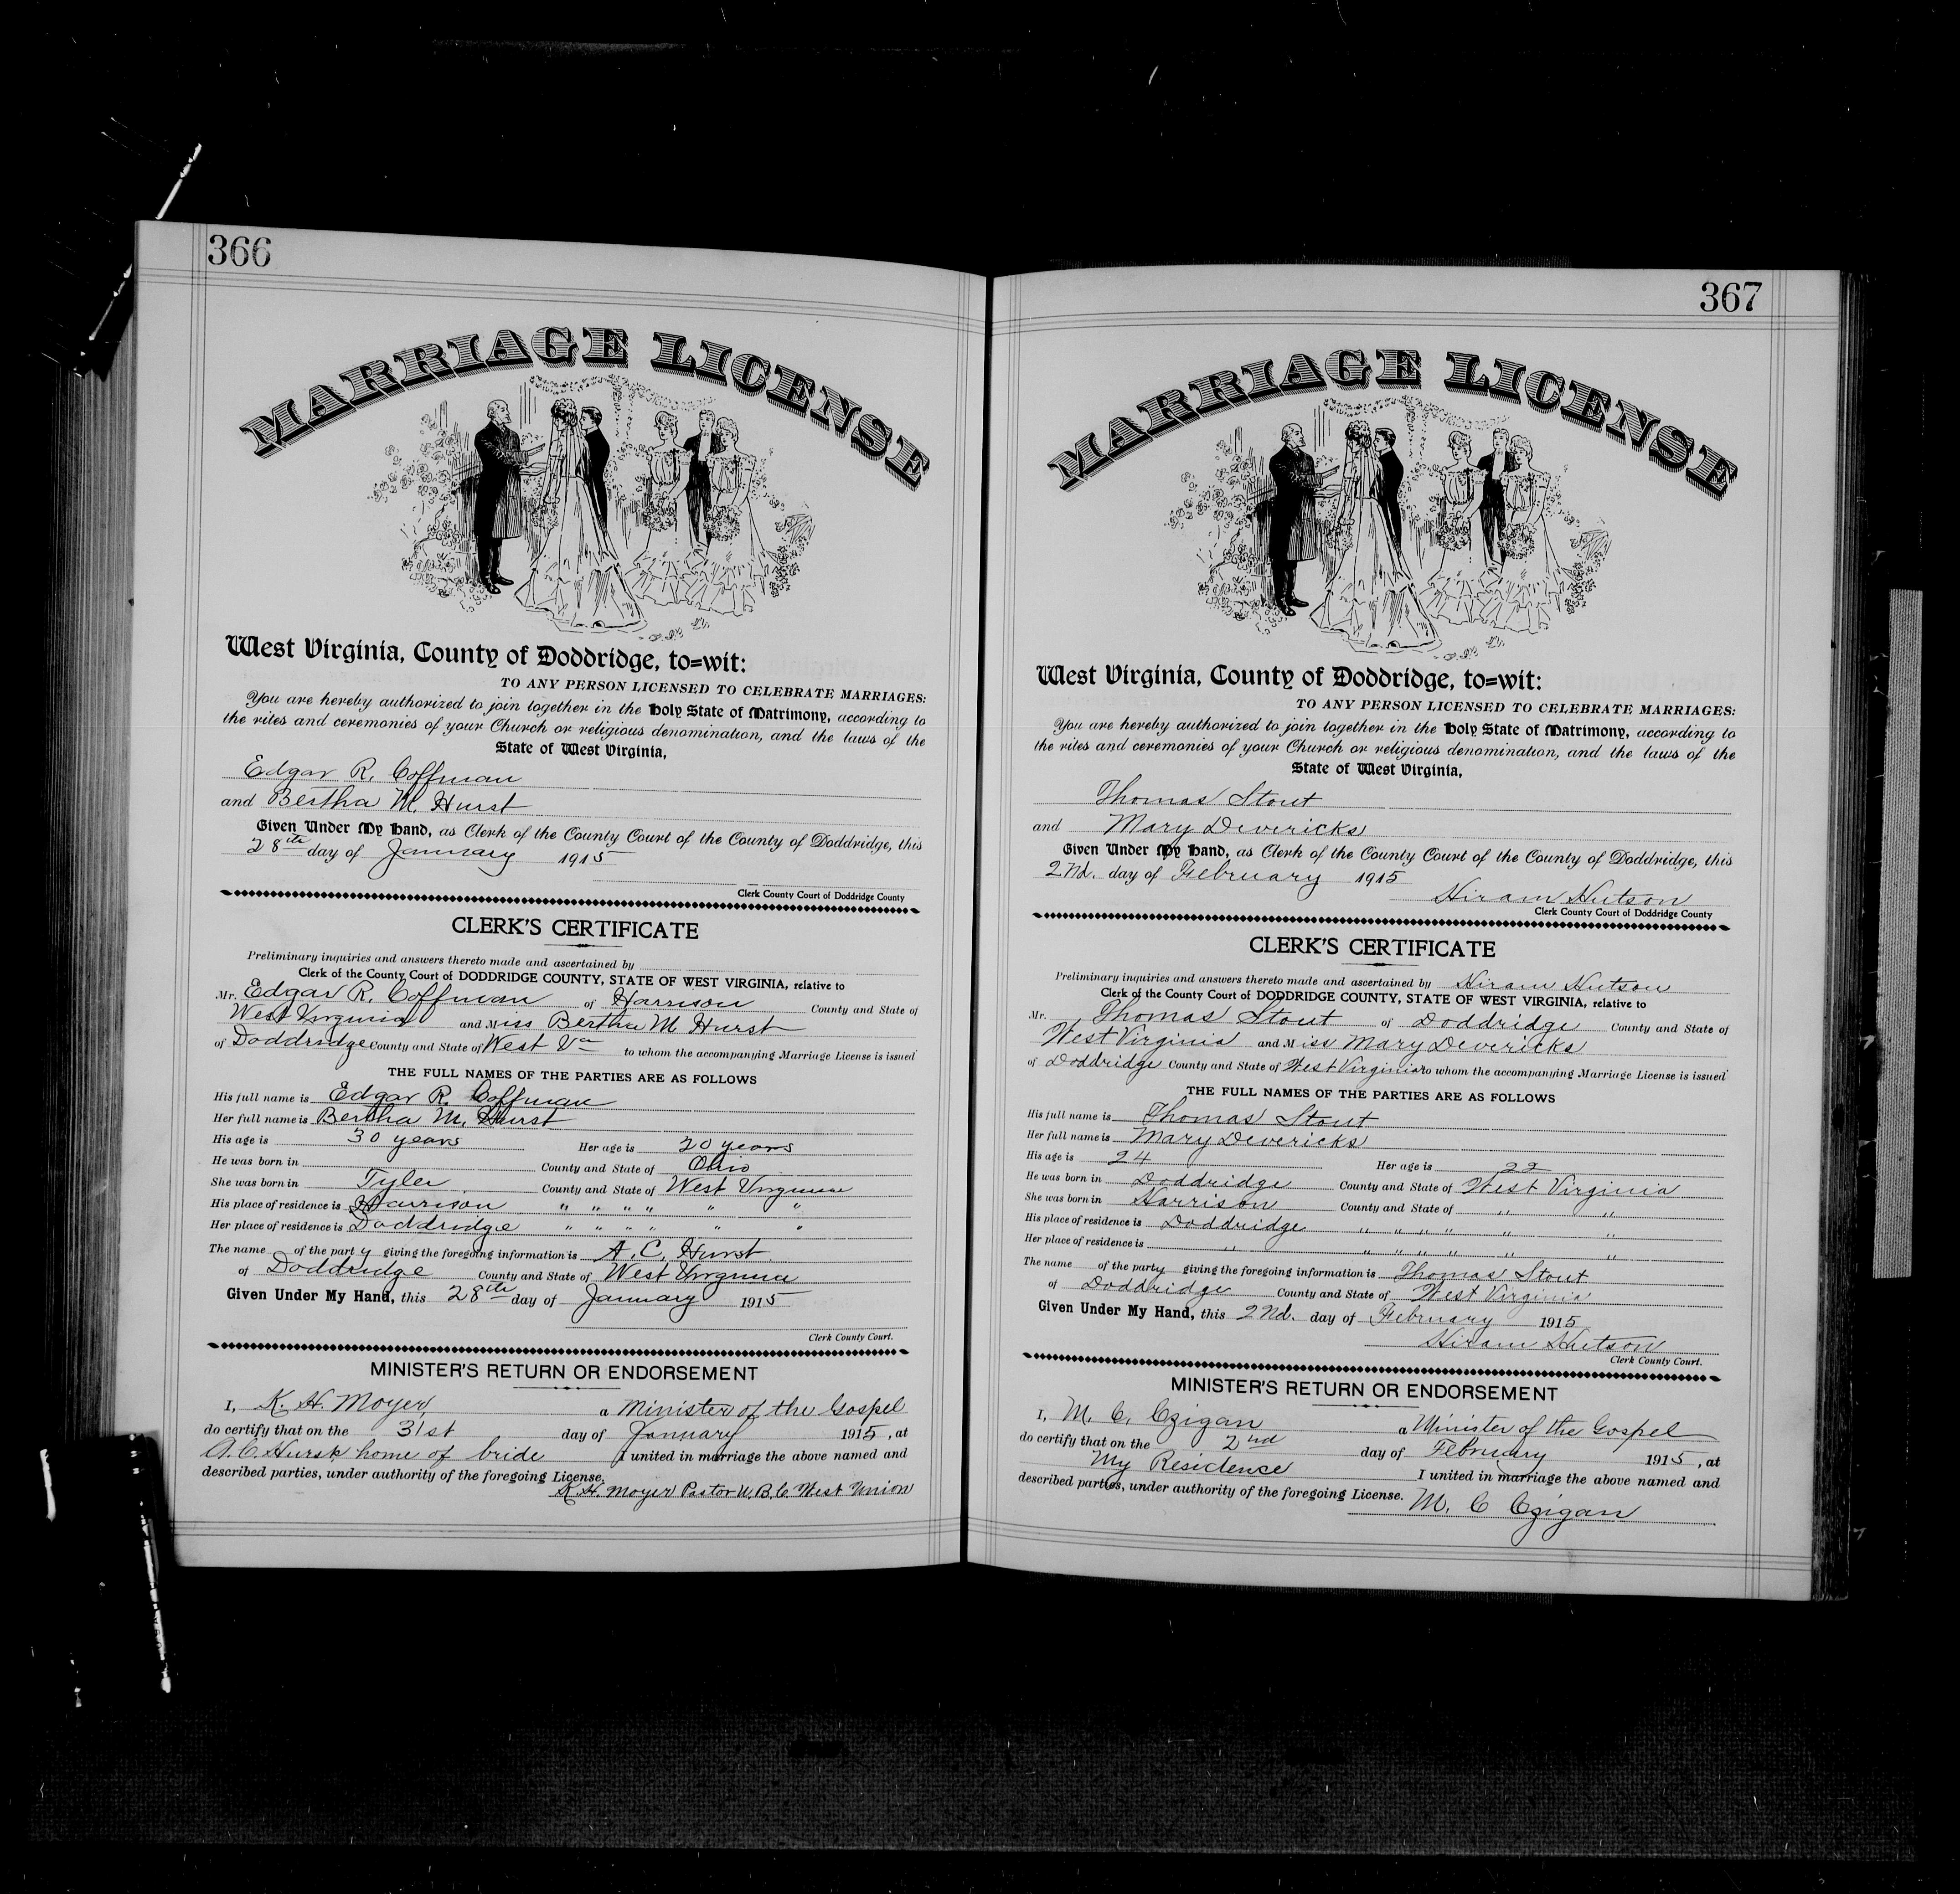 366
MARRIAGE LICENSE
West Virginia, County of Doddridge, to=wit:
TO ANY PERSON LICENSED TO CELEBRATE MARRIAGES:
You are hereby authorized to join together in the Holy State of Matrimony, according to
the rites and ceremonies of your Church or religious denomination, and the laws of the
State of West Virginia,
Edgar R. Coffman
and Bertha M. Hurst
Given Under My Hand, as Clerk of the County Court of the County of Doddridge, this
28th day of January 1915
Clerk County Court of Doddridge County
CLERK'S CERTIFICATE
Preliminary inquiries and answers thereto made and ascertained by
Clerk of the County Court of DODDRIDGE COUNTY, STATE OF WEST VIRGINIA, relative to
Mr. Edgar R. Coffman of Harrison County and State of
West Virginia and Miss Bertha M Hurst
of Doddridge County and State of West Va to whom the accompanying Marriage License is issued
THE FULL NAMES OF THE PARTIES ARE AS FOLLOWS
His full name is Edgar R. Coffman
Her full name is Bertha M. Hurst
His age is 30 years Her age is 20 years
He was born in County and State of Ohio
She was born in Tyler County and State of West Virginia
His place of residence is Harrison " " " " " "
Her place of residence is Doddridge " " " " " "
The name of the party giving the foregoing information is A. C. Hurst
of Doddridge County and State of West Virginia
Given Under My Hand, this 28th day of January 1915
Clerk County Court.
MINISTER'S RETURN OR ENDORSEMENT
I, K. H. Moyer, a Minister of the Gospel
do certify that on the 31st day of January 1915, at
A. C. Hursk home of bride I united in marriage the above named and
described parties, under authority of the foregoing License.
K. H. Moyer Pastor U. B. C. West Union
367
MARRIAGE LICENSE
West Virginia, County of Doddridge, to=wit:
TO ANY PERSON LICENSED TO CELEBRATE MARRIAGES:
You are hereby authorized to join together in the Holy State of Matrimony, according to
the rites and ceremonies of your Church or religious denomination, and the laws of the
State of West Virginia,
Thomas Stout
and Mary Devericks
Given Under My Hand, as Clerk of the County Court of the County of Doddridge, this
2nd. day of February 1915
Hiram Hutson
Clerk County Court of Doddridge County
CLERK'S CERTIFICATE
Preliminary inquiries and answers thereto made and ascertained by Hiram Hutson
Clerk of the County Court of DODDRIDGE COUNTY, STATE OF WEST VIRGINIA, relative to
Mr. Thomas Stout of Doddridge County and State of
West Virginia and Miss Mary Devericks
of Doddridge County and State of West Virginia to whom the accompanying Marriage License is issued
THE FULL NAMES OF THE PARTIES ARE AS FOLLOWS
His full name is Thomas Stout
Her full name is Mary Devericks
His age is 24 Her age is 22
He was born in Doddridge County and State of West Virginia
She was born in Harrison County and State of " "
His place of residence is Doddridge " " " " " "
Her place of residence is " " " " " " "
The name of the party giving the foregoing information is Thomas Stout
of Doddridge County and State of West Virginia
Given Under My Hand, this 2nd. day of February 1915
Hiram Hutson
Clerk County Court.
MINISTER'S RETURN OR ENDORSEMENT
I, M. C. Czigan a Minister of the Gospel
do certify that on the 2nd day of February 1915, at
My Residense I united in marriage the above named and
described parties, under authority of the foregoing License.
M. C Czigan